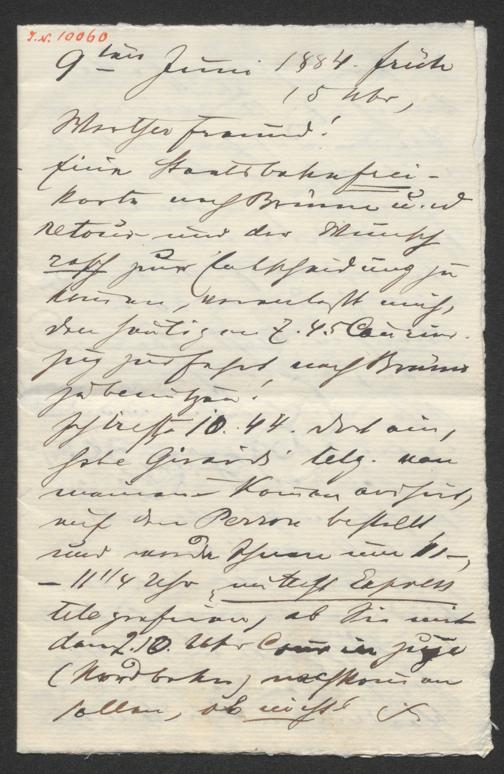 I.N. 10060
9ten Juni 1884. früh
5 Uhr,
Werther Freund!
Eine Staatsbahnfrei-
karte nach Brünn u. 
retour und der Wunsch
rasch zur Entscheidung zu
kommen, veranlaßt mich,
den heutigen 7.45 Courier-
zug zur Fahrt nach Brünn
zu benützen!
Ich treffe 10.44. dort ein,
habe Girardi telg. von
meinem Kommen avisirt,
auf den Perron bestellt,
und werde Ihnen um 11–
– 11 1/4 Uhr mittelst Express
telegrafiren, ob Sie mit
dem 2.10. Uhr Courierzuge
(Nordbahn) nachkommen
sollen, ob nicht!